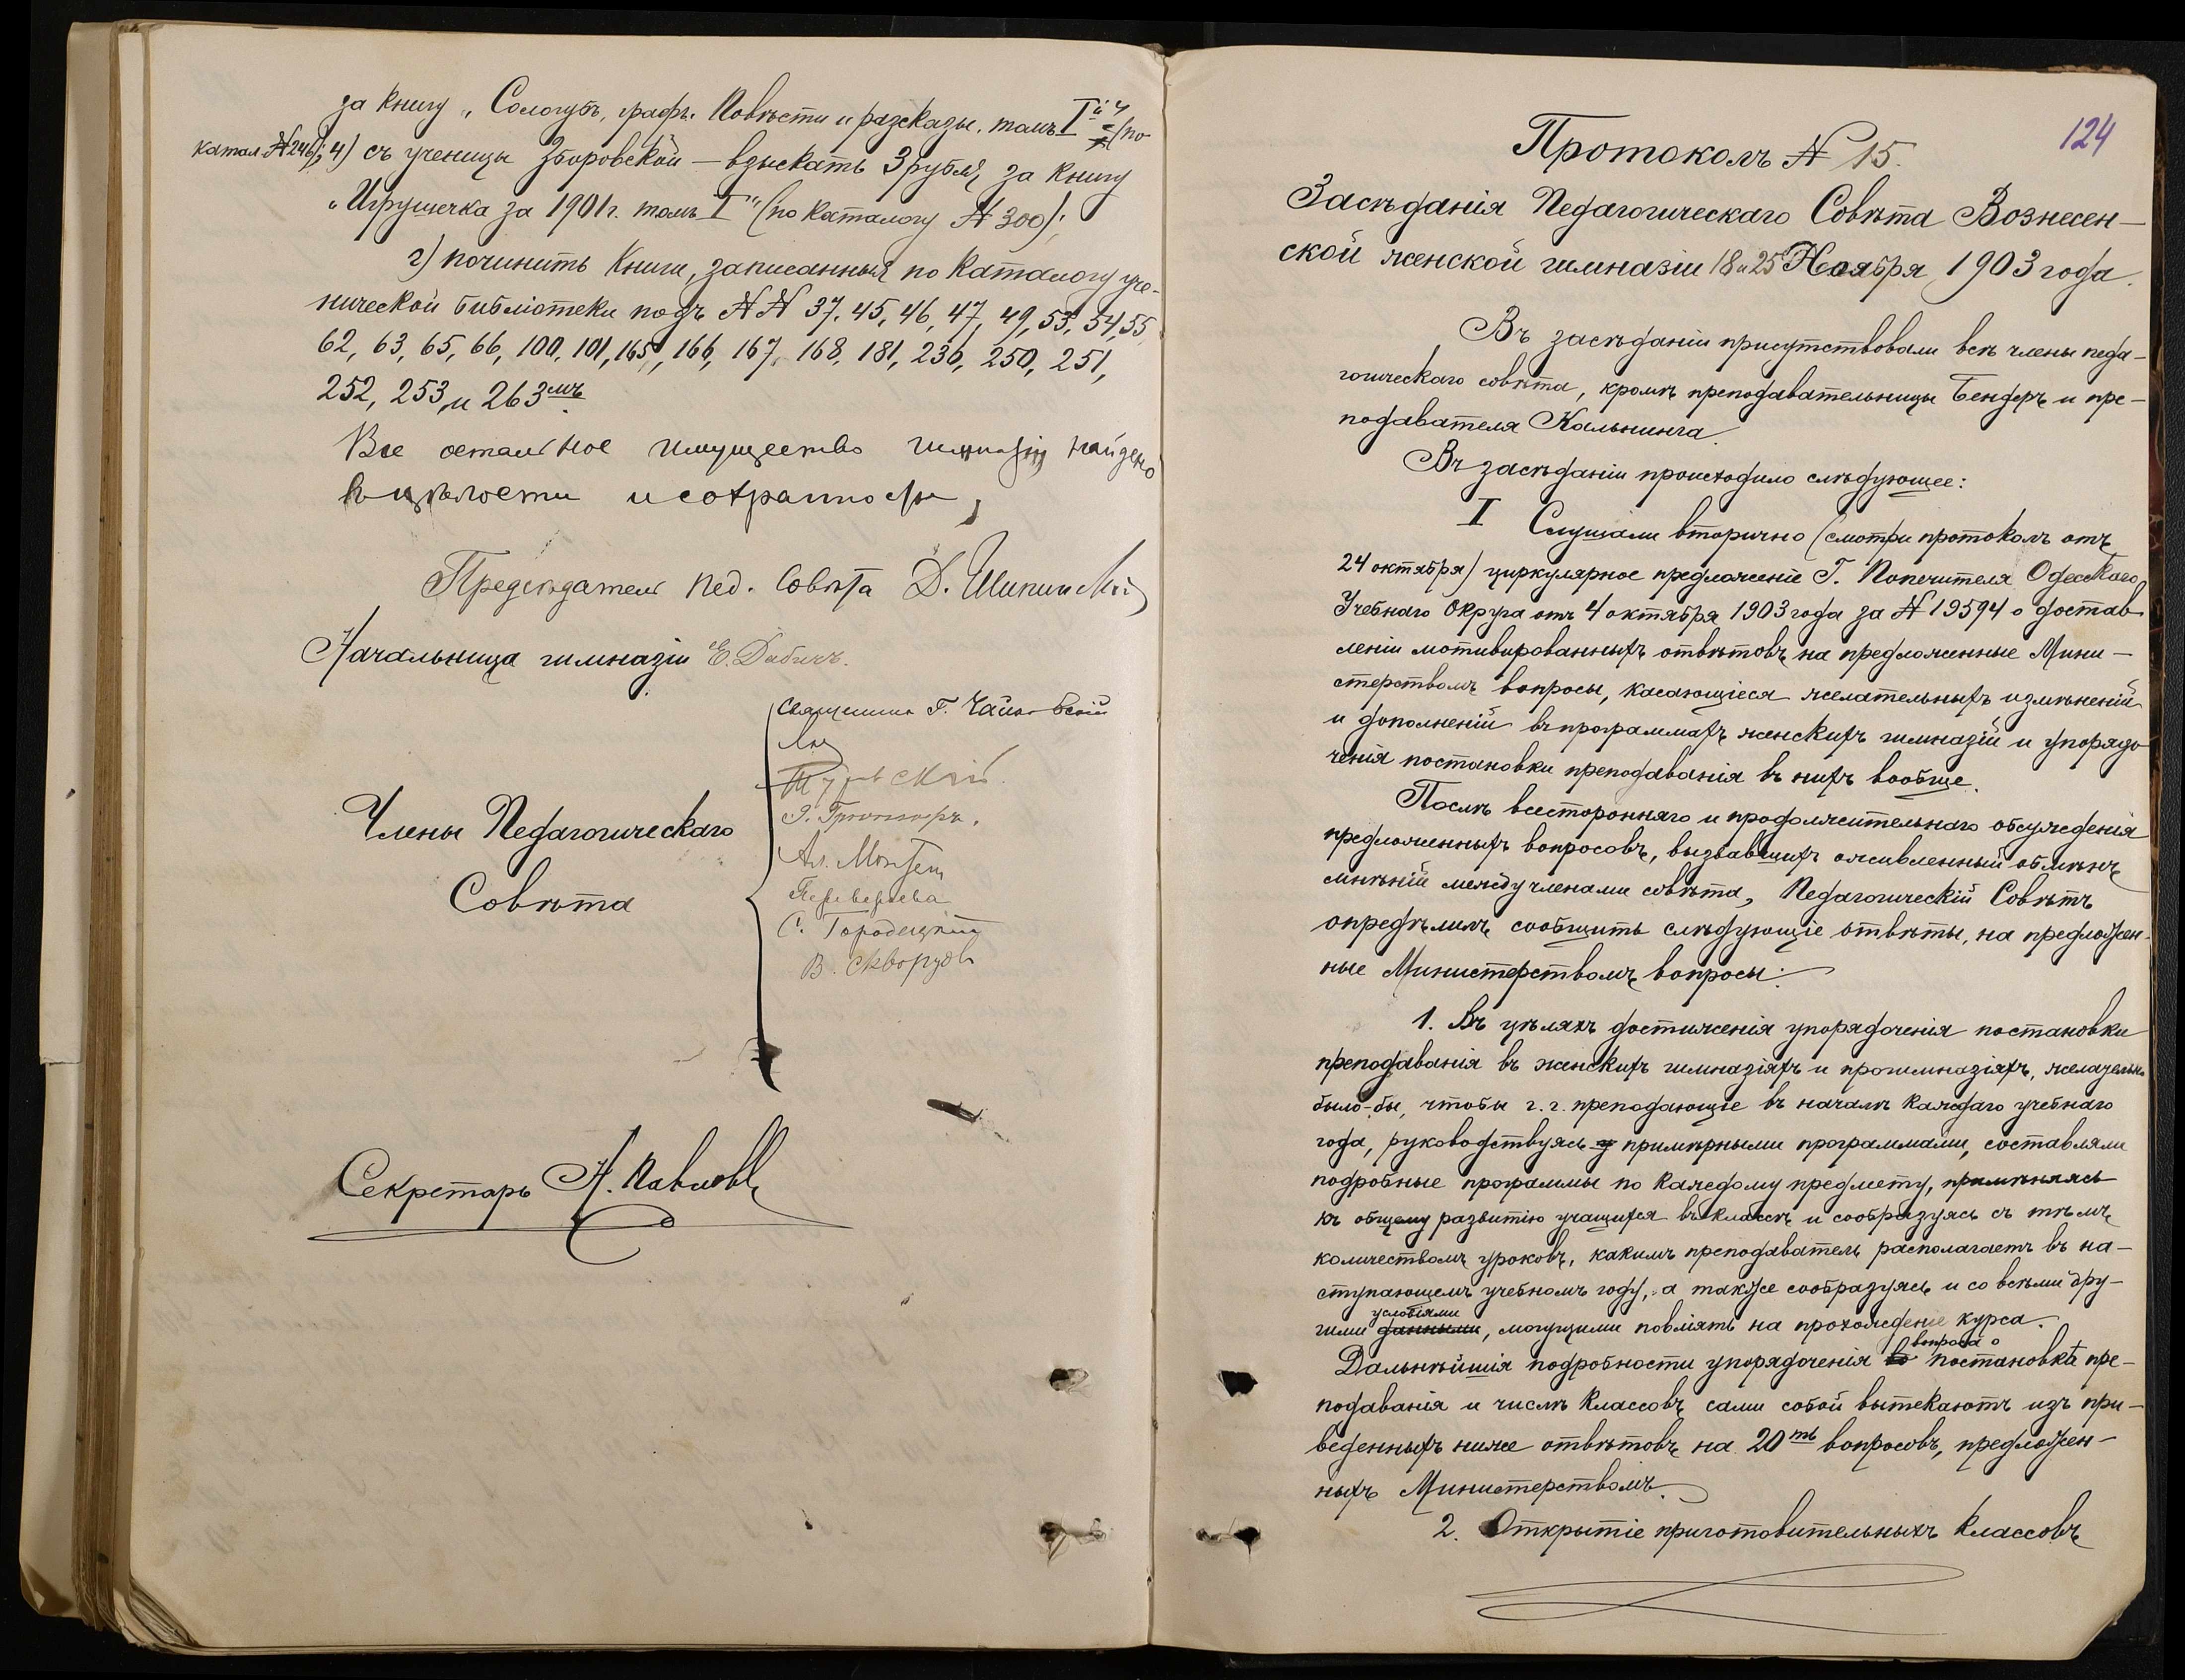 за книгу „Сологубъ, графъ. Повѣсти и разсказы, томъ I-й“ (по
катал. № 246); 4) съ ученицы Зборовской — взыскать 3 рубля за книгу
„Игрушечка за 1901 г. томъ I“ (по каталогу № 300);
г) починить книги, записанныя по каталогу уче-
нической библіотеки подъ №№ 37, 45, 46, 47, 49, 53, 54, 55,
62, 63, 65, 66, 100, 101, 165, 166, 167, 168, 181, 236, 250, 251,
252, 253 и 263мъ.
Все остальное имущество гимназіи найдено
въ цѣлости и сохранности,
Предсѣдатель пед. Совѣта Д.
Начальница гимназіи Е. Дабичъ.
Священникъ Г.
Члены Педагогическаго
Совѣта
С. Городецкій
В. Скворцовъ
Секретарь Н. Павловъ
124
Протоколъ № 15.
Засѣданія Педагогическаго Совѣта Вознесен-
ской женской гимназіи 18 и 25 Ноября 1903 года.
Въ засѣданіи присутствовали всѣ члены педа-
гогическаго совѣта, кромѣ преподавательницы Бендеръ и пре-
подавателя Кальнинга.
Въ засѣданіи происходило слѣдующее:
I Слушали вторично (смотри протоколъ отъ
24 октября) циркулярное предложеніе Г. Попечителя Одесскаго
Учебнаго Округа отъ 4 октября 1903 года за № 19594 о достав-
леніи мотивированныхъ отвѣтовъ на предложенные Мини-
стерствомъ вопросы, касающіеся желательныхъ измѣненій
и дополненій въ программахъ женскихъ гимназій и упорядо-
ченія постановки преподаванія въ нихъ вообще.
Послѣ всесторонняго и продолжительнаго обсужденія
предложенныхъ вопросовъ, вызвавшихъ оживленный обмѣнъ
мнѣній между членами совѣта, Педагогическій Совѣтъ
опредѣлилъ сообщить слѣдующіе отвѣты, на предложен-
ные Министерствомъ вопросы:
1. Въ цѣляхъ достиженія упорядоченія постановки
преподаванія въ женскихъ гимназіяхъ и прогимназіяхъ, желательно
было-бы, чтобы г.г. преподающіе въ началѣ каждаго учебнаго
года, руководствуясь примѣрными программами, составляли
подробныя программы по каждому предмету, примѣняясь
къ общему развитію учащихся въ классѣ и сообразуясь съ тѣмъ
количествомъ уроковъ, какимъ преподаватель располагаетъ въ на-
ступающемъ учебномъ году, а также сообразуясь и со всѣми дру-
условіями
гими данными, могущими повліять на прохожденіе курса.
вопроса о
Дальнѣйшія подробности упорядоченія постановкѣ пре-
подаванія и числѣ классовъ сами собой вытекаютъ изъ при-
веденныхъ ниже отвѣтовъ на 20ть вопросовъ, предложен-
ныхъ Министерствомъ.
2. Открытіе приготовительныхъ классовъ